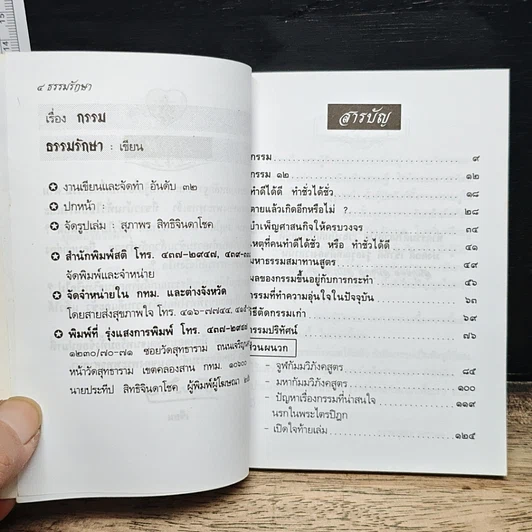 ๔ ธรรมรักษา
เรื่อง กรรม
ธรรมรักษา : เขียน
งานเขียนและจัดทำ อันดับ ๓๒
ปกหน้า :
จัดรูปเล่ม : สุภาพร สิทธิจินดาโชค
สำนักพิมพ์สติ โทร. ๔๓๗-๒๙๔๗, ๔๓๙-
จัดพิมพ์และจำหน่าย
จัดจำหน่ายใน กทม. และต่างจังหวัด
โดยสายส่งสุขภาพใจ โทร. ๔๑๖-๗๗๔๔,
พิมพ์ที่ รุ่งแสงการพิมพ์ โทร. ๔๓๗-๒๙๔๗
๑๒๓๐/๗๐-๗๑ ซอยวัดสุทธาราม ถนนเจริญ
หน้าวัดสุทธาราม เขตคลองสาน กทม. ๑๐๖๐๐
นายประทีป สิทธิจินดาโชค ผู้พิมพ์ผู้โฆษณา
สารบัญ
กรรม ๙
กรรม ๑๒ ๑๒
ทำดีได้ดี ทำชั่วได้ชั่ว ๑๘
ตายแล้วเกิดอีกหรือไม่ ? ๒๘
บำเพ็ญศาสนกิจให้ครบวงจร ๓๔
เหตุที่คนทำดีได้ชั่ว หรือ ทำชั่วได้ดี ๔๑
มหาธรรมสมาทานสูตร ๔๙
ผลของกรรมขึ้นอยู่กับการกระทำ ๕๖
กรรมที่ทำความอุ่นใจในปัจจุบัน ๖๓
วิธีตัดกรรมเก่า ๖๙
กรรมปริทัศน์ ๗๖
ส่วนผนวก
- จูฬกัมมวิภังคสูตร ๘๔
- มหากัมมวิภังคสูตร ๑๐๐
- ปัญหาเรื่องกรรมที่น่าสนใจ ๑๑๙
นรกในพระไตรปิฎก
- เปิดใจท้ายเล่ม ๑๒๔